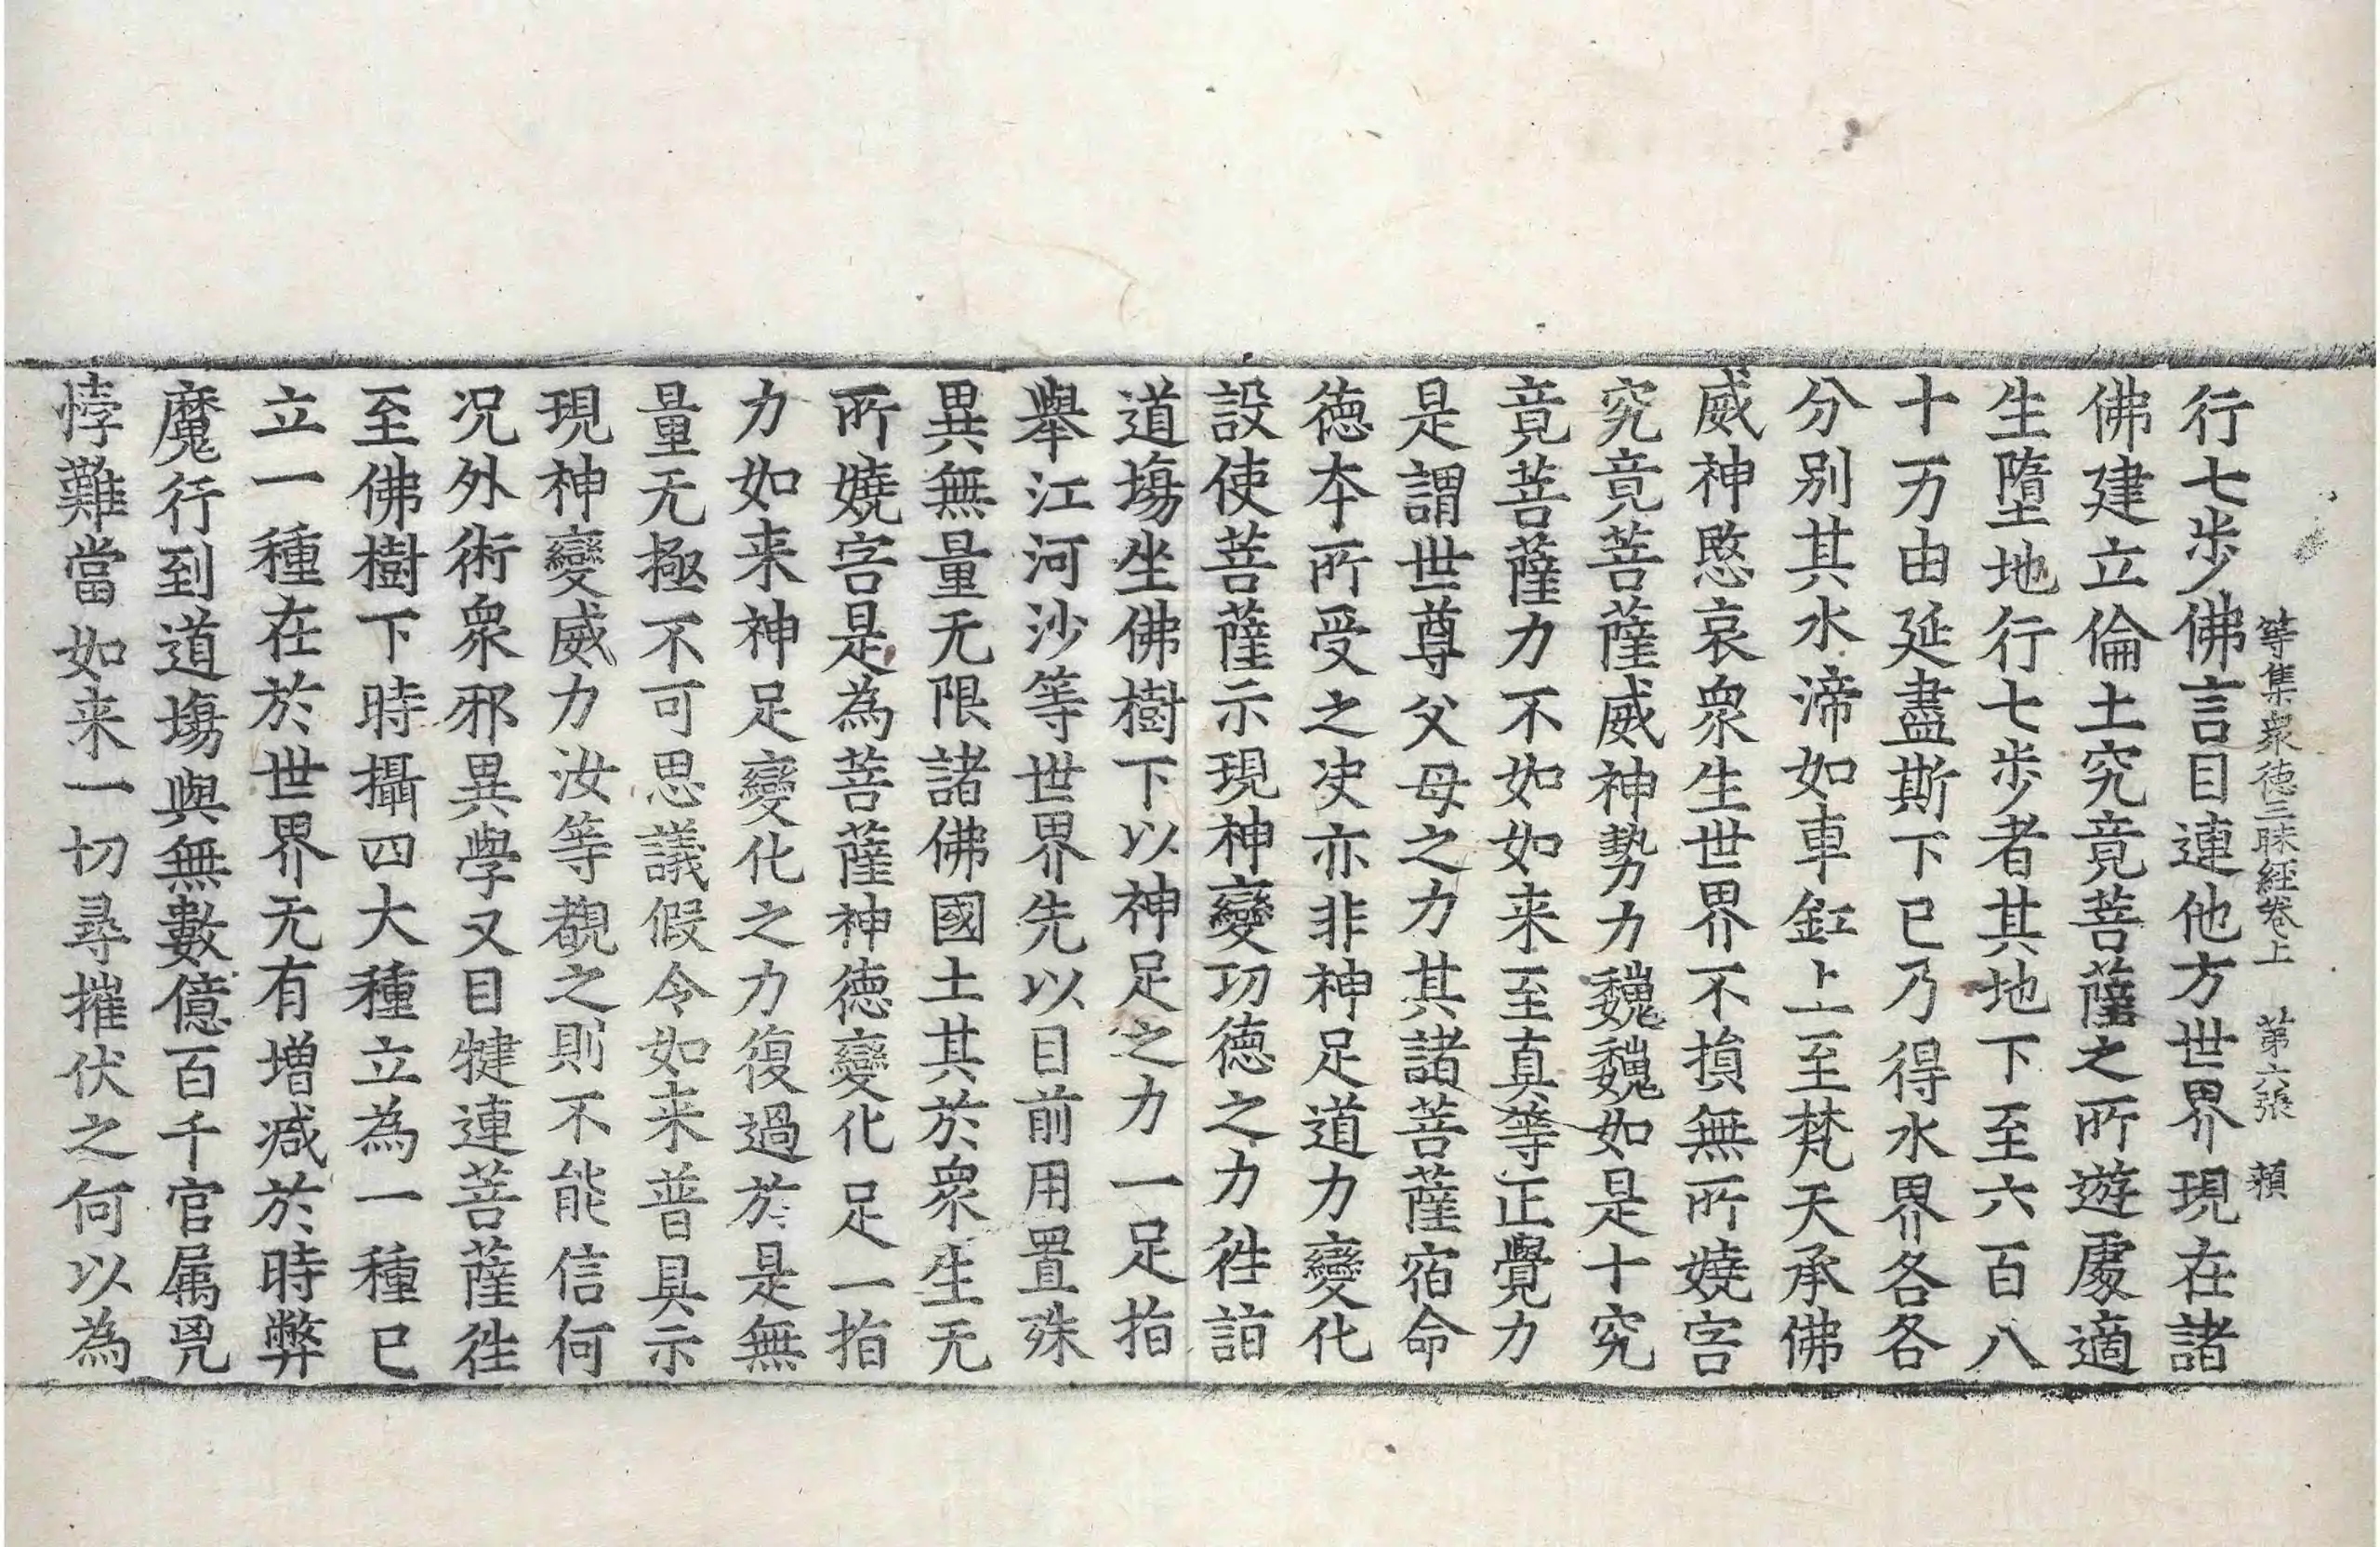 等集衆德三昧經卷上　第六張　頛
行七步佛言目連他方世界現在諸
佛建立倫土究竟菩薩之所遊處適
生墮地行七步者其地下至六百八
十万由延盡斯下已乃得水界各各
分别其水渧如車釭上至梵天承佛
威神愍哀衆生世界不損無所嬈害
究竟菩薩威神勢力巍巍如是十究
竟菩薩力不如如来至真等正覺力
是謂世尊父母之力其諸菩薩宿命
德本所受之决亦非神足道力變化
設使菩薩示現神變功德之力往詣
道塲坐佛樹下以神足之力一足指
舉江河沙等世界先以目前用置殊
異無量无限諸佛國土其於衆生无
所嬈害是為菩薩神德變化足一指
力如来神足變化之力復過於是無
量无極不可思議假令如来普具示
現神變威力汝等覩之則不能信何
况外術衆邪異學又目犍連菩薩往
至佛樹下時攝四大種立為一種已
立一種在於世界无有增减於時弊
魔行到道塲與無數億百千官属兇
悖難當如来一切尋摧伏之何以為